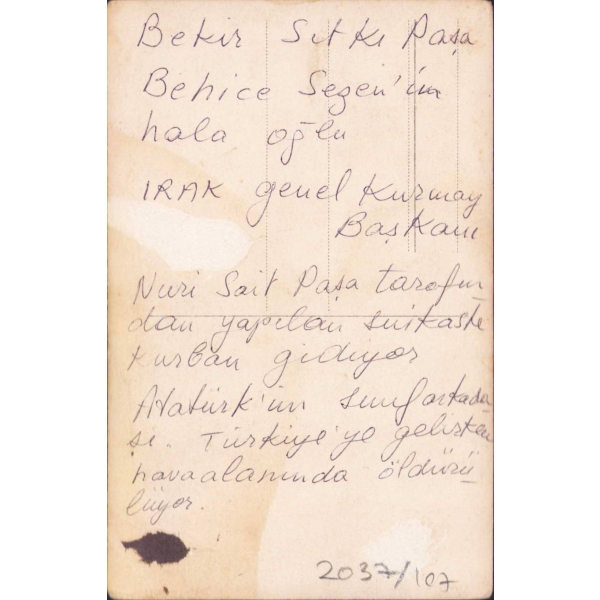 Bekir Sıtkı Paşa
Behice Sezen'in
hala oğlu
IRAK genel Kurmay
Başkanı
Nuri Sait Paşa tarafın
dan yapılan suikaste
kurban gidiyor
Atatürk'ün sınıf arkada
şı. Türkiye'ye gelirken
havaalanında öldürü
lüyor.
2037/107